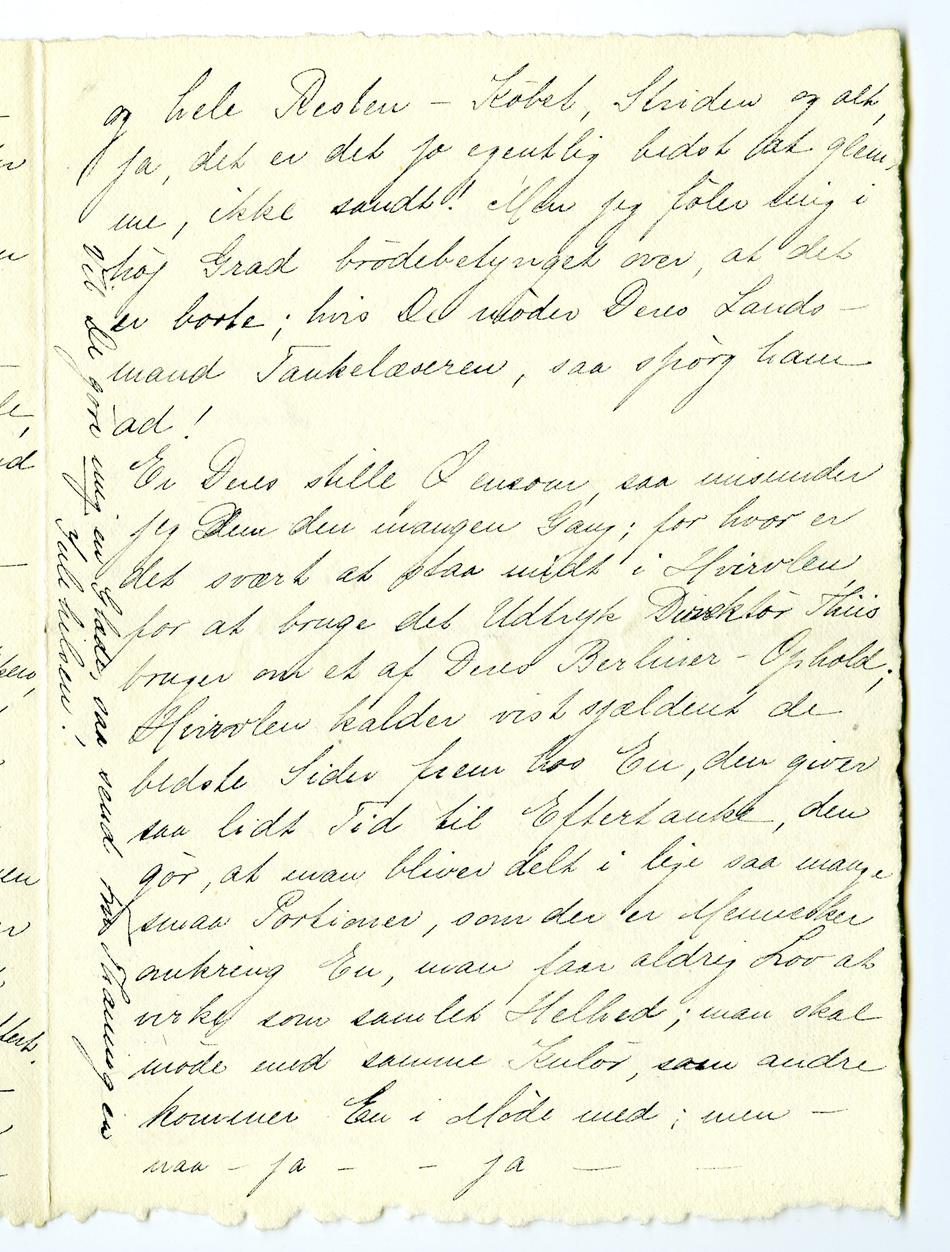 og hele Resten – Købet, Striden og alt,
ja, det er det jo egentlig bedst at glem,
me, ikke sandt! Men jeg føler mig i
høj Grad brødebetynget over, at det
er borte; hvis De møder Deres Lands-
mand Tankelæseren, saa spørg ham
ad!
Er Deres stille Ø ensom, saa misunder
jeg Dem den mangen Gang; for hvor er
det svært at staa midt i Hvirvlen,
for at bruge det Udtryk Direktør Thiis
bruger om et af Deres Berliner-Ophold;
Hvirvlen kalder vist sjældent de
bedste Sider frem hos En, den giver
saa lidt Tid til Eftertanke, den
gør, at man bliver delt i lige saa mange
smaa Portioner, som der er Mennesker
omkring En, man faar aldrig Lov at
virke som samlet Helhed; man skal
møde med samme Kulør, som andre
kommer En i Møde med; men –
naa – ja – – ja — —
Vil De gøre mig en Glæde, saa send Frk Thaning en
Julehilsen!